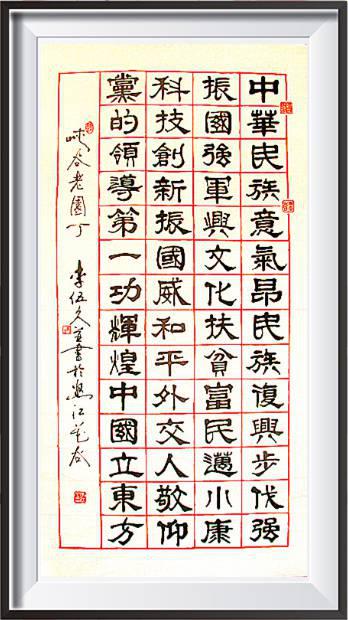 中華民族意氣昂民族復興步伐强
振國强軍興文化扶貧富民邁小康
科技創新振國威和平外交人敬仰
黨的領導第一功輝煌中國立東方
峽谷老園丁 李伍久並書於